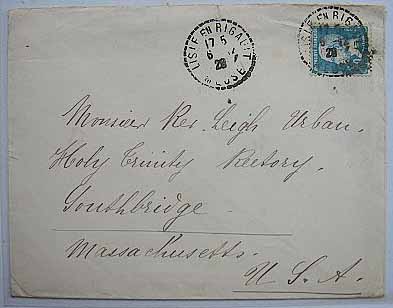 LISLE EN RIGAULT
17 5
6
28
MEUSE
LISLE EN RIGAULT
28
Monsieur Rev. Leigh Urban.
Holy Trinity Rectory.
Southbridge
Massachusetts.
U. S. A.